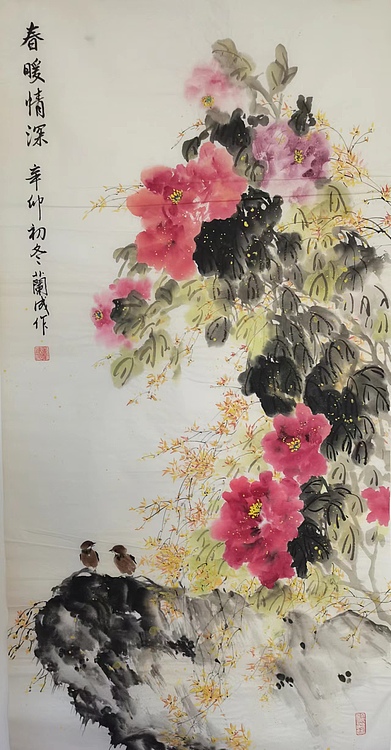 春暖情深 辛卯初冬蘭成作